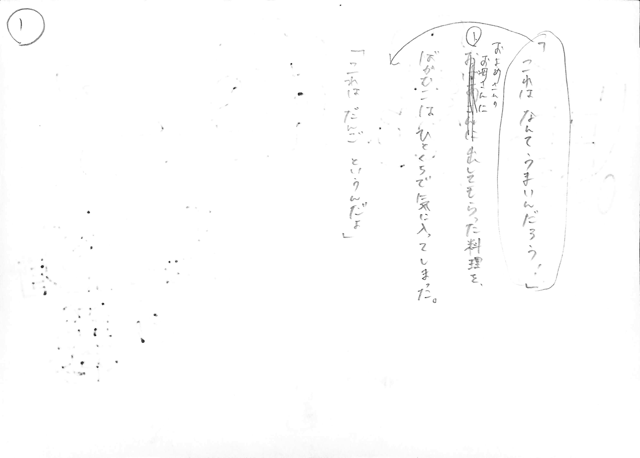 ①
「これは なんて うまいんだろう！」
①
およめさんの
お母さんに
出してもらった料理を、
ばかむこは ひとくちで気に入ってしまった。
「これは だんご というんだよ」